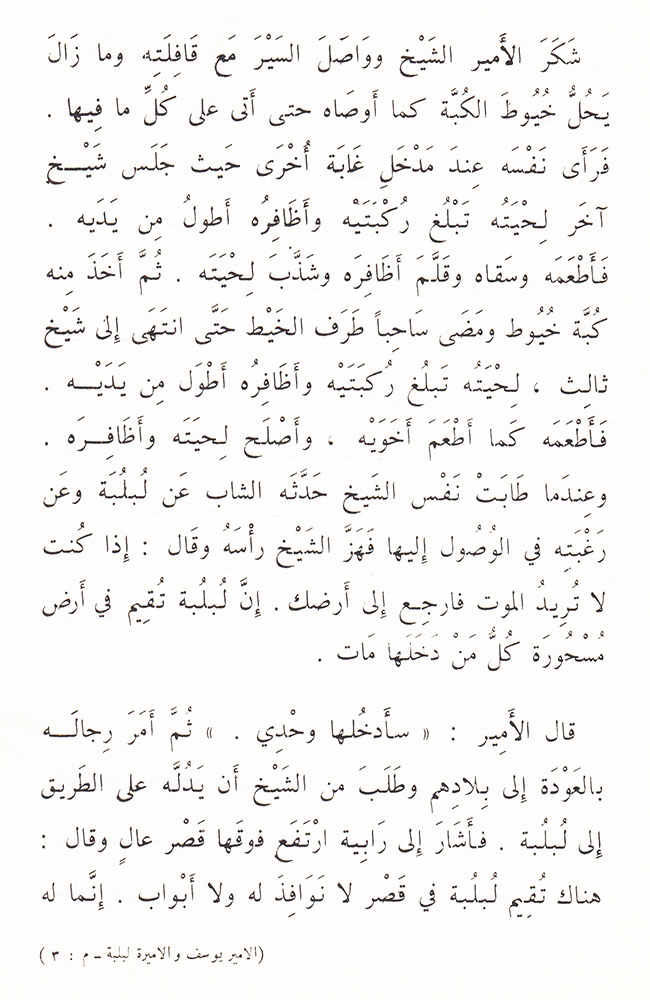 شَكَرَ الأَمير الشَيْخ ووَاصَلَ السَيْرَ مَع قَافِلَتِهِ، وما زَالَ
يَحُلُّ خُيُوطَ الكُبَّة كما أَوصَاه حتى أَتى على كُلِّ ما فِيها .
فَرَأَى نَفْسَه عِندَ مَدْخَلِ غَابَة أُخْرَى حَيث جَلَس شَيْـخ
آخَر لِـحْيَتُه تَبْلُغ رُكْبَتَيْه وأَظَافِرُه أَطولُ مِن يَدَيه .
فَأَطْعَمَه وسَقاه وقَلَّمَ أَظَافِرَه وشَذَّبَ لِـحْيَتَه . ثُمَّ أَخَذَ مِنه
كُبَّة خُيُوط ومَضَى سَاحِباً طَرَف الخَيْط حَتَّى انتَهَى إِلىٰ شَيْخ
ثالِث ، لِـحْيَتُه تَبلُغ رُكبَتَيْه وأَظَافِرُه أَطْوَل مِن يَدَيْـه .
فَأَطْعَمَه كَما أَطْعَمَ أَخَوَيْه ، وأَصْلَح لِـحيَتَه وأَظَافِـرَه .
وعِندَما طَابَتْ نَفْس الشَيخ حَدَّثَه الشاب عَن لُبلُبَة وعَن
رَغْبَتِه في الوُصُول إِليها فَهَزَّ الشَيْخ رأْسَهُ وقَال : إِذا كُنت
لا تُرِيدُ الموت فارجِـع إِلى أَرضك . إِنَّ لُبلُبة تُقِيم في أَرض
مُسْحُورَة كُلُّ مَنْ دَخَلَها مَات .
قال الأَمِير : « سأَدخُلها وحْدِي . » ثُمَّ أَمَرَ رِجالَـه
بالعَوْدَة إِلى بِلادِهِم وطَلَبَ من الشَيْخ أَن يَدُلَّه على الطَرِيق
إِلى لُبلُبة . فأَشَارَ إِلى رَابِية ارْتَفَع فوقَها قَصْر عالٍ وقال :
هناك تُقِيم لُبلُبة في قَصْر لا نَوَافِذَ له ولا أَبْواب . إِنَّما له
(الامير يوسف والاميرة لبلبة - م : ٣ )